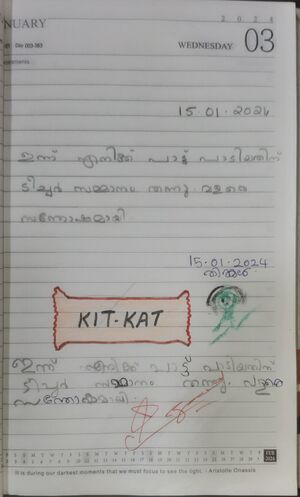 NUARY
2 0 2 4
Day 003-363
WEDNESDAY 03
15.01.2024
ഇന്ന് എനിക്ക് പാട്ട് പാടിയതിന്
ടീച്ചർ സമ്മാനം തന്നു. വളരെ
സന്തോഷമായി.
15.01.2024
തിങ്കൾ
KIT-KAT
ഇന്ന് എനിക്ക് പാട്ട് പാടിയതിന്
ടീച്ചർ സമ്മാനം തന്നു. വളരെ
സന്തോഷമായി.
FEB
2024
It is during our darkest moments that we must focus to see the light. - Aristotle Onassis